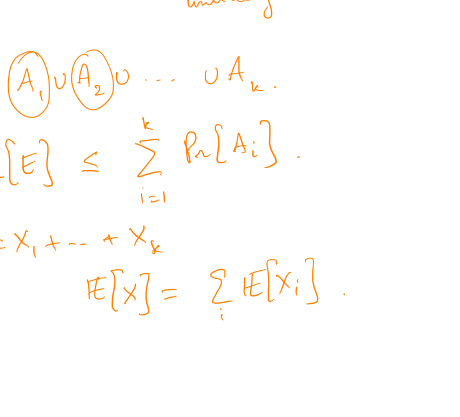 A₁ ∪ A₂ ∪ ... ∪ Aₖ.
[E] ≤ ∑ᵢ₌₁ᵏ Pr[Aᵢ].
= X₁ + ... + Xₖ
𝔼[X] = ∑ᵢ 𝔼[Xᵢ].